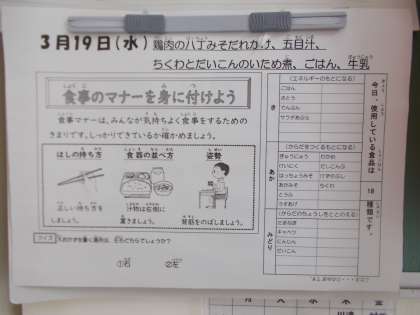 3月19日(水) 鶏肉の八丁みそだれかけ、五目汁、
ちくわとだいこんのいため煮、ごはん、牛乳
食事のマナーを身に付けよう
食事マナーは、みんなが気持ちよく食事をするための
きまりです。しっかりできているか確かめましょう。
はしの持ち方
正しい持ち方を
しましょう。
食器の並べ方
汁物は右側に
置きましょう。
姿勢
背筋をのばしましょう。
クイズ
①右 ②左
今日、使用している食品は
18
種類です。
き
(エネルギーのもとになる)
ごはん
さとう
でんぷん
サラダあぶら
あか
(からだをつくるもとになる)
ぎゅうにゅう わかめ
けいにく だいこんば
はっちょうみそ けずりぶし
あかみそ ちくわ
とうふ
うずあげ
みどり
(からだのちょうしをととのえる)
たまねぎ
キャベツ
にんじん
だいこん